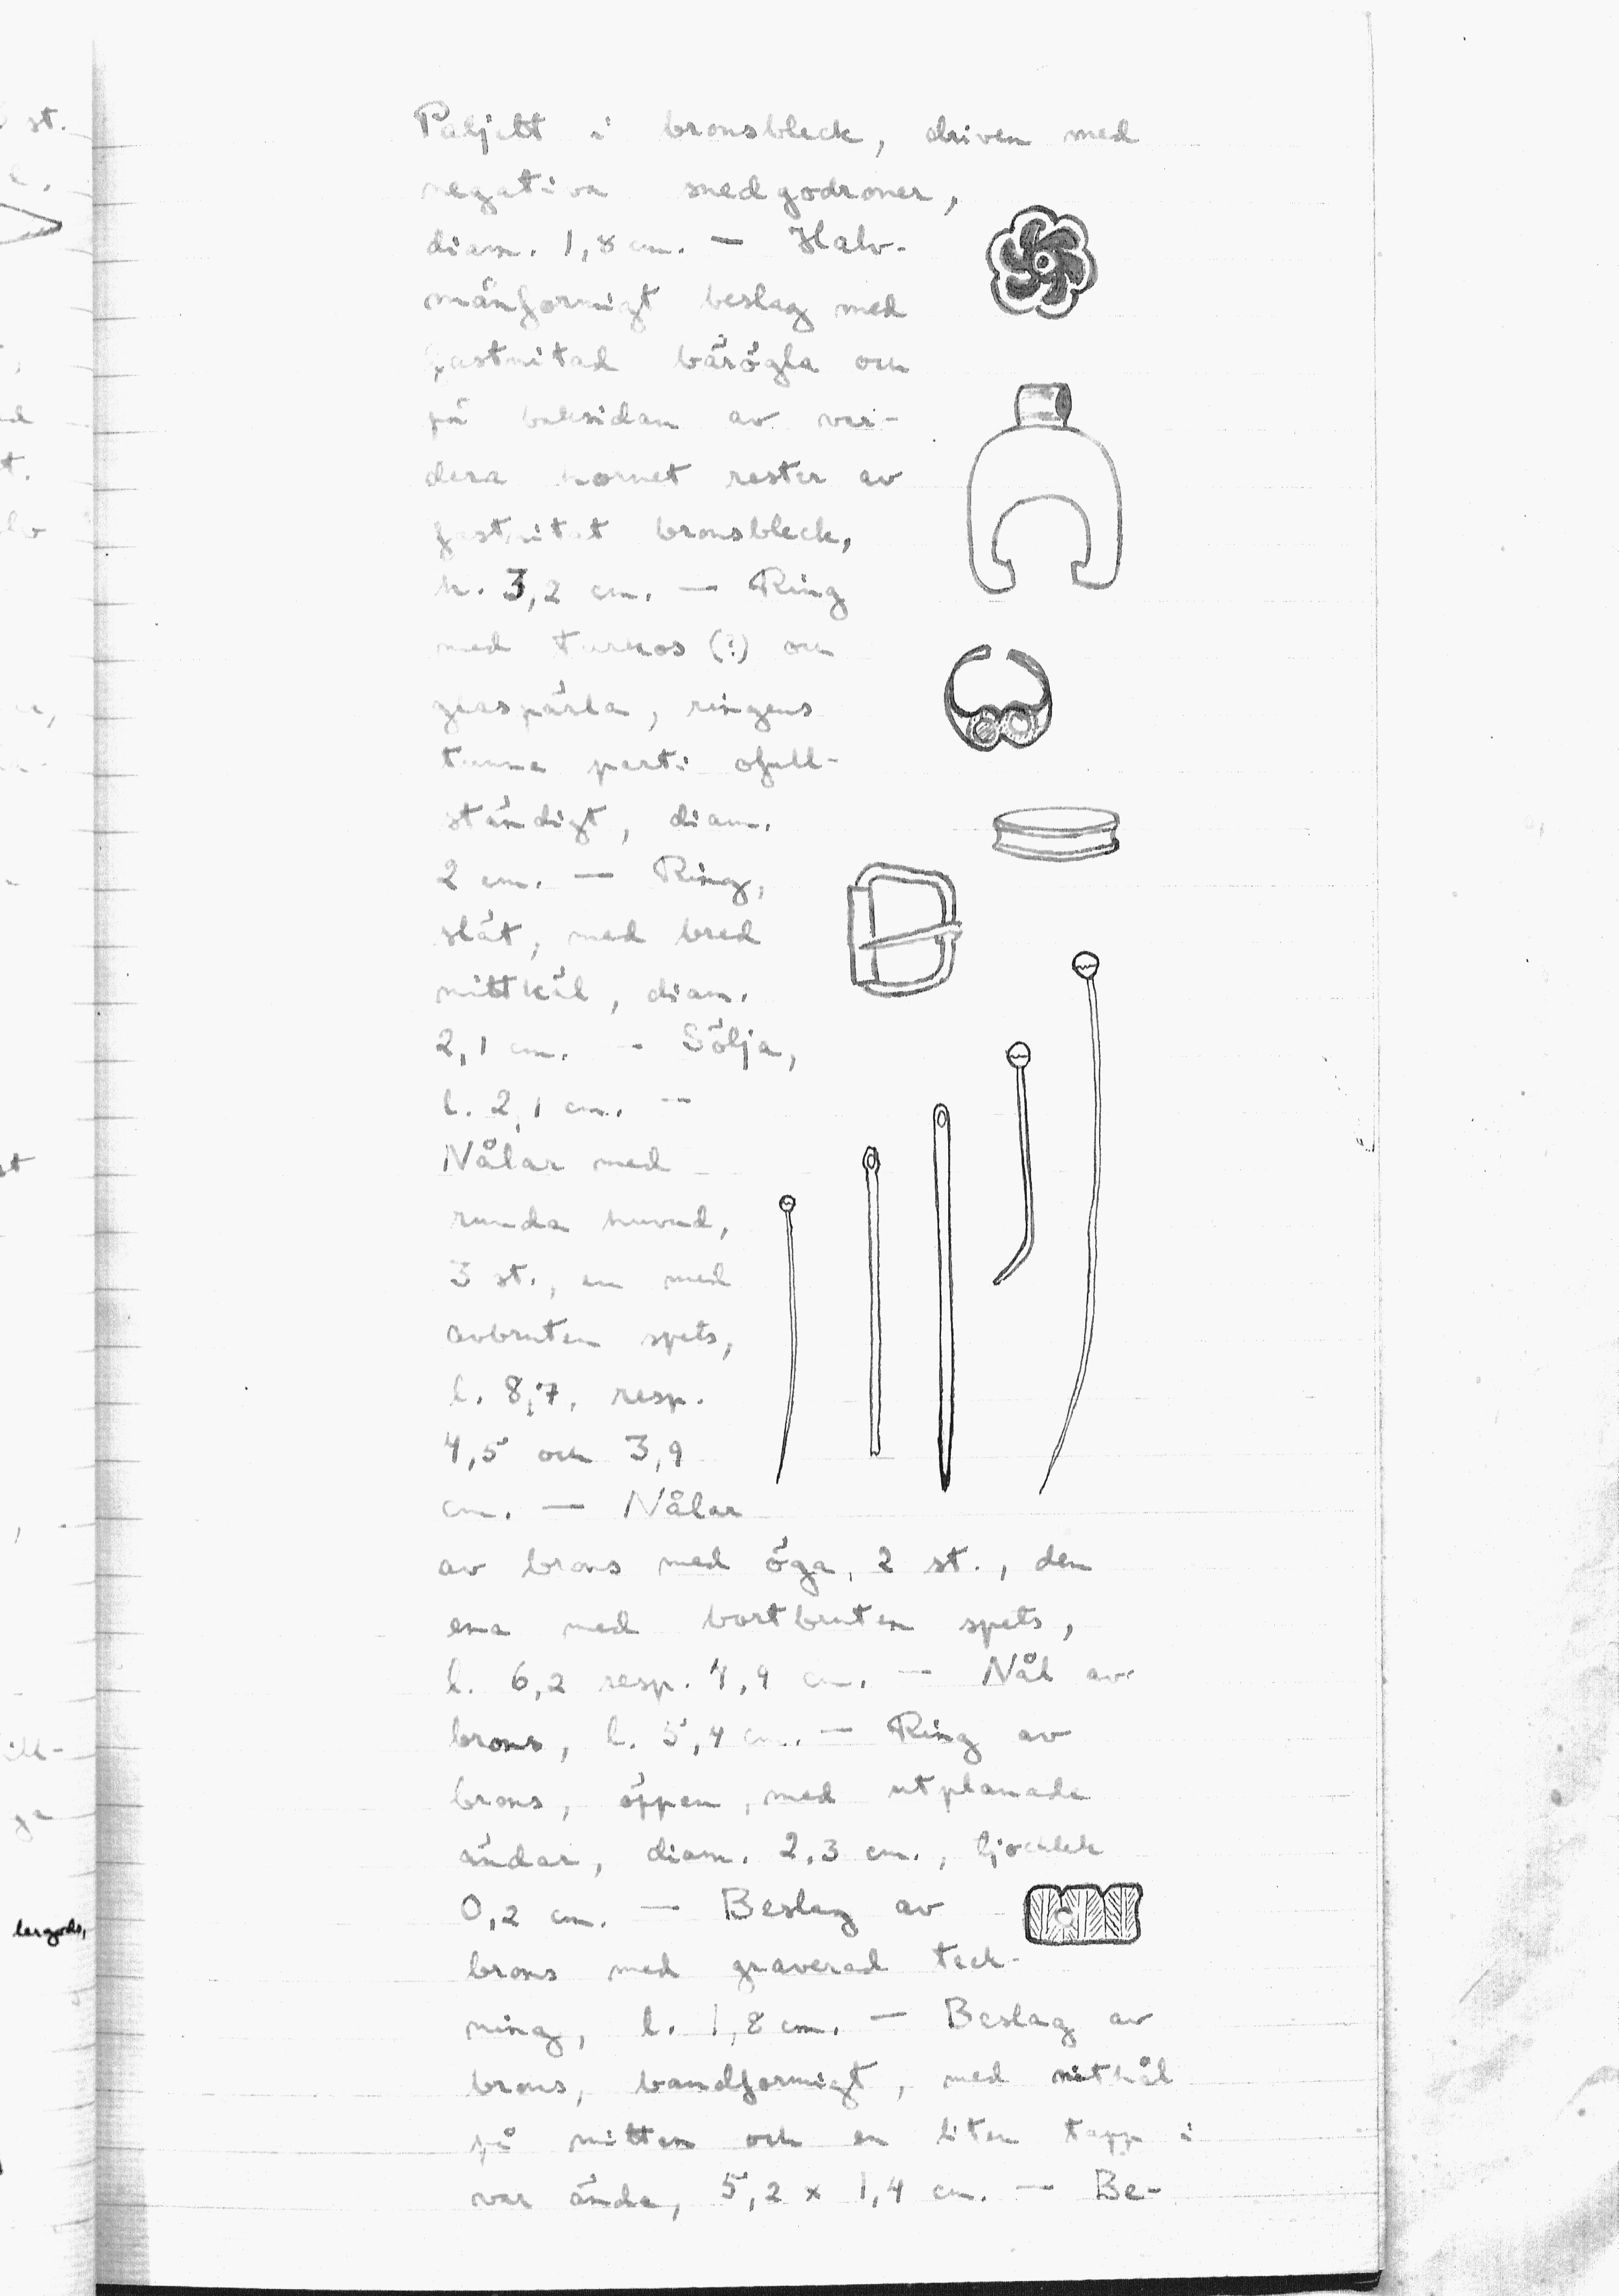 Paljett i bronsbleck, driven med
negativa snedgodroner,
diam. 1,8 cm. — Halv-
månformigt beslag med
fastnitad bärögla och
på baksidan av var-
dera hornet rester av
fastnitat bronsbleck,
h. 3,2 cm. — Ring
med turkos (?) och
glaspärla, ringens
tunna parti ofull-
ständigt, diam.
2 cm. — Ring,
slät, med bred
mittkäl, diam.
2,1 cm. — Sölja,
l. 2,1 cm. —
Nålar med
runda huvud,
3 st., en med
avbruten spets,
l. 8,7, resp.
4,5 och 3,9
cm. — Nålar
av brons med öga, 2 st., den
ena med bortbruten spets,
l. 6,2 resp. 4,9 cm. — Nål av
brons, l. 5,4 cm. — Ring av
brons, öppen, med utplanade
ändar, diam. 2,3 cm., tjocklek
0,2 cm. — Beslag av
brons med graverad teck-
ning, l. 1,8 cm. — Beslag av
brons, bandformigt, med nithål
på mitten och en liten tapp i
var ända, 5,2 x 1,4 cm. — Be-
st.
lergods,